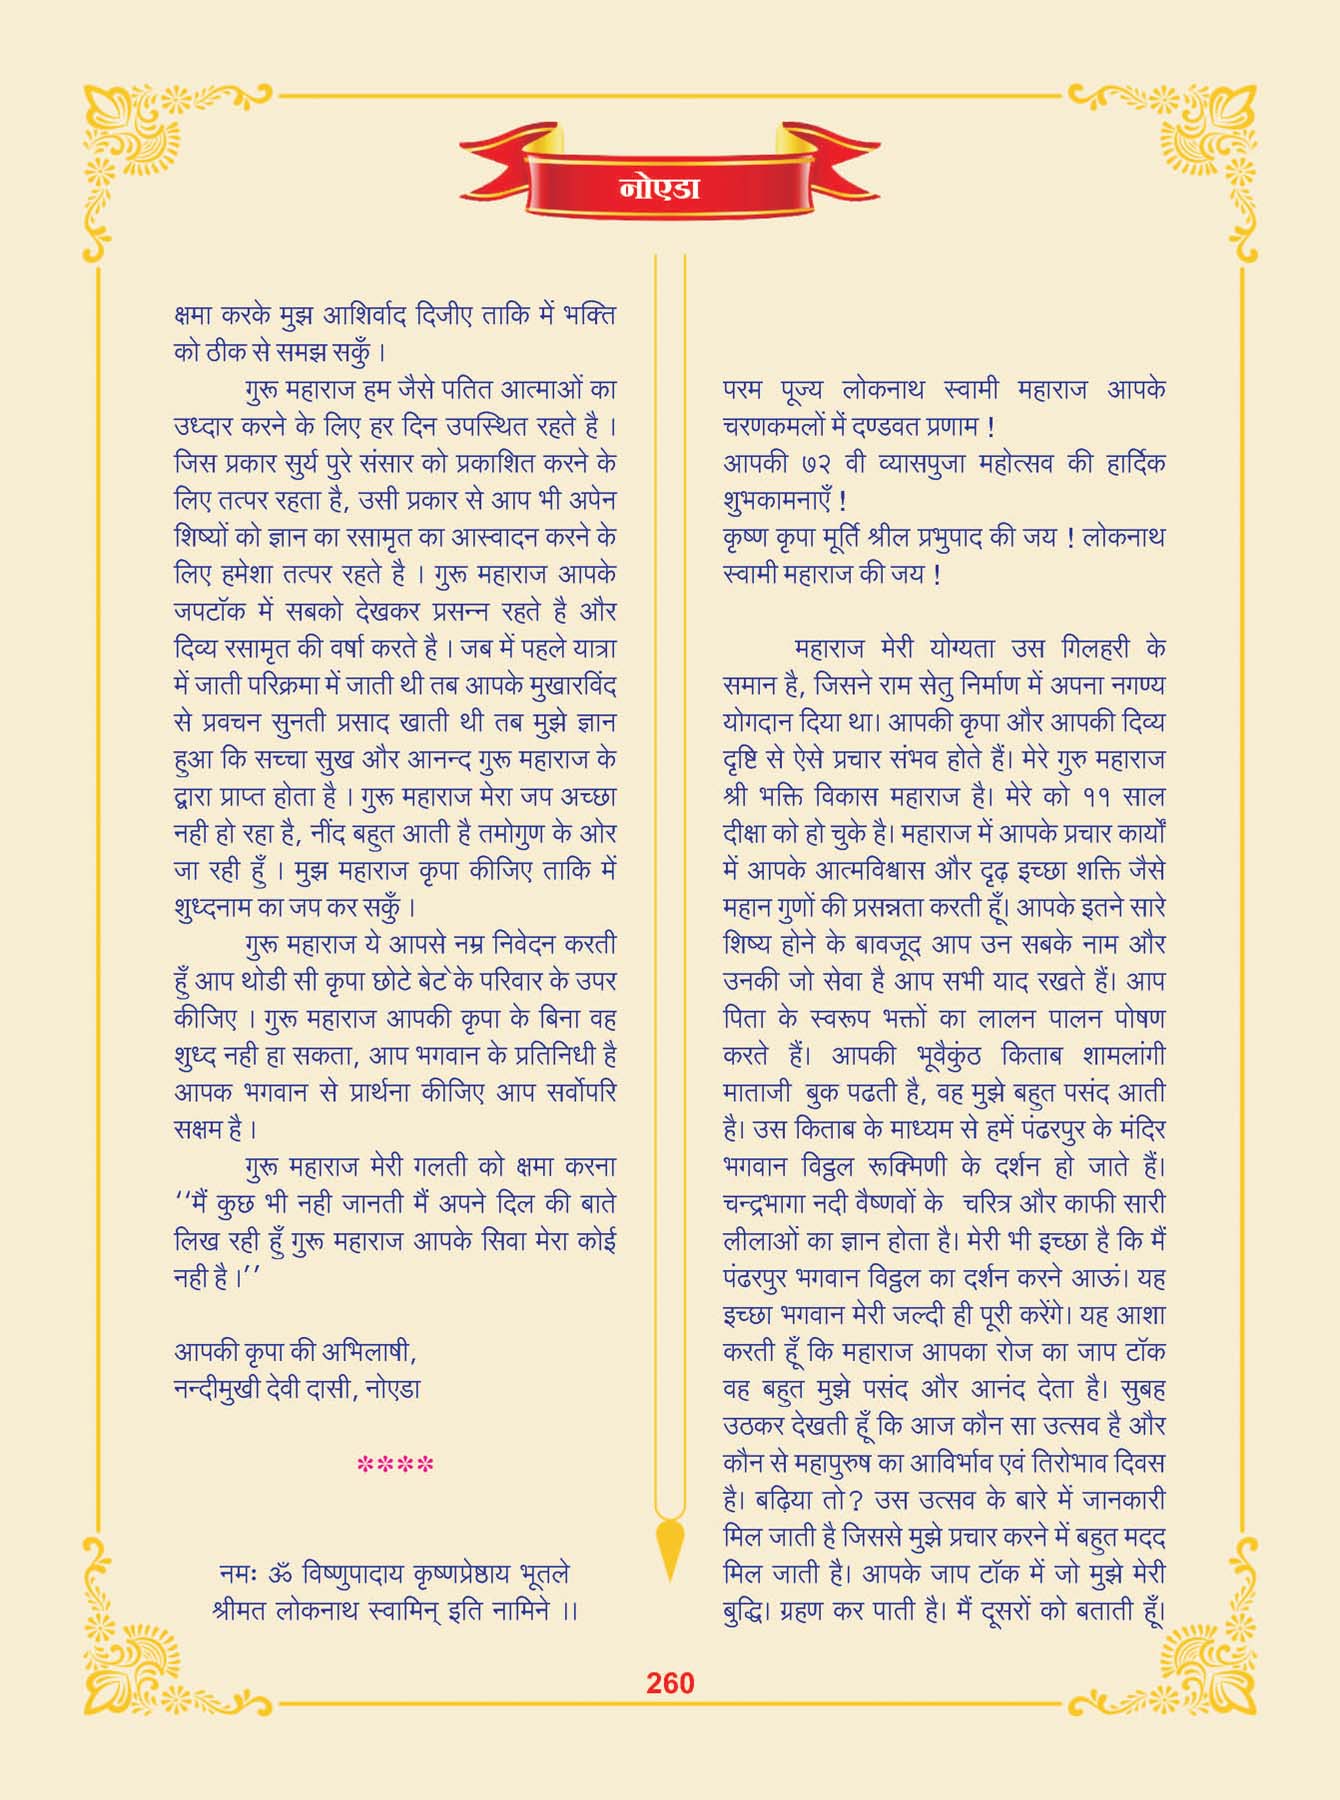 नोएडा
क्षमा करके मुझ आशिर्वाद दिजीए ताकि में भक्ति
को ठीक से समझ सकुँ ।
गुरू महाराज हम जैसे पतित आत्माओं का
उध्दार करने के लिए हर दिन उपस्थित रहते है ।
जिस प्रकार सुर्य पुरे संसार को प्रकाशित करने के
लिए तत्पर रहता है, उसी प्रकार से आप भी अपेन
शिष्यों को ज्ञान का रसामृत का आस्वादन करने के
लिए हमेशा तत्पर रहते है । गुरू महाराज आपके
जपटॉक में सबको देखकर प्रसन्न रहते है और
दिव्य रसामृत की वर्षा करते है । जब में पहले यात्रा
में जाती परिक्रमा में जाती थी तब आपके मुखारविंद
से प्रवचन सुनती प्रसाद खाती थी तब मुझे ज्ञान
हुआ कि सच्चा सुख और आनन्द गुरू महाराज के
द्वारा प्राप्त होता है । गुरू महाराज मेरा जप अच्छा
नही हो रहा है, नींद बहुत आती है तमोगुण के ओर
जा रही हुँ । मुझ महाराज कृपा कीजिए ताकि में
शुध्दनाम का जप कर सकुँ ।
गुरू महाराज ये आपसे नम्र निवेदन करती
हुँ आप थोडी सी कृपा छोटे बेटे के परिवार के उपर
कीजिए । गुरू महाराज आपकी कृपा के बिना वह
शुध्द नही हा सकता, आप भगवान के प्रतिनिधी है
आपक भगवान से प्रार्थना कीजिए आप सर्वोपरि
सक्षम है ।
गुरू महाराज मेरी गलती को क्षमा करना
‘‘मैं कुछ भी नही जानती मैं अपने दिल की बाते
लिख रही हुँ गुरू महाराज आपके सिवा मेरा कोई
नही है ।’’
आपकी कृपा की अभिलाषी,
नन्दीमुखी देवी दासी, नोएडा
****
नमः ॐ विष्णुपादाय कृष्णप्रेष्ठाय भूतले
श्रीमत लोकनाथ स्वामिन् इति नामिने ।।
परम पूज्य लोकनाथ स्वामी महाराज आपके
चरणकमलों में दण्डवत प्रणाम !
आपकी ७२ वी व्यासपुजा महोत्सव की हार्दिक
शुभकामनाएँ !
कृष्ण कृपा मूर्ति श्रील प्रभुपाद की जय ! लोकनाथ
स्वामी महाराज की जय !
महाराज मेरी योग्यता उस गिलहरी के
समान है, जिसने राम सेतु निर्माण में अपना नगण्य
योगदान दिया था। आपकी कृपा और आपकी दिव्य
दृष्टि से ऐसे प्रचार संभव होते हैं। मेरे गुरु महाराज
श्री भक्ति विकास महाराज है। मेरे को ११ साल
दीक्षा को हो चुके है। महाराज में आपके प्रचार कार्यों
में आपके आत्मविश्वास और दृढ़ इच्छा शक्ति जैसे
महान गुणों की प्रसन्नता करती हूँ। आपके इतने सारे
शिष्य होने के बावजूद आप उन सबके नाम और
उनकी जो सेवा है आप सभी याद रखते हैं। आप
पिता के स्वरूप भक्तों का लालन पालन पोषण
करते हैं। आपकी भूवैकुंठ किताब शामलांगी
माताजी बुक पढती है, वह मुझे बहुत पसंद आती
है। उस किताब के माध्यम से हमें पंढरपुर के मंदिर
भगवान विट्ठल रूक्मिणी के दर्शन हो जाते हैं।
चन्द्रभागा नदी वैष्णवों के चरित्र और काफी सारी
लीलाओं का ज्ञान होता है। मेरी भी इच्छा है कि मैं
पंढरपुर भगवान विट्ठल का दर्शन करने आऊं। यह
इच्छा भगवान मेरी जल्दी ही पूरी करेंगे। यह आशा
करती हूँ कि महाराज आपका रोज का जाप टॉक
वह बहुत मुझे पसंद और आनंद देता है। सुबह
उठकर देखती हूँ कि आज कौन सा उत्सव है और
कौन से महापुरुष का आविर्भाव एवं तिरोभाव दिवस
है। बढ़िया तो? उस उत्सव के बारे में जानकारी
मिल जाती है जिससे मुझे प्रचार करने में बहुत मदद
मिल जाती है। आपके जाप टॉक में जो मुझे मेरी
बुद्धि। ग्रहण कर पाती है। मैं दूसरों को बताती हूँ।
260